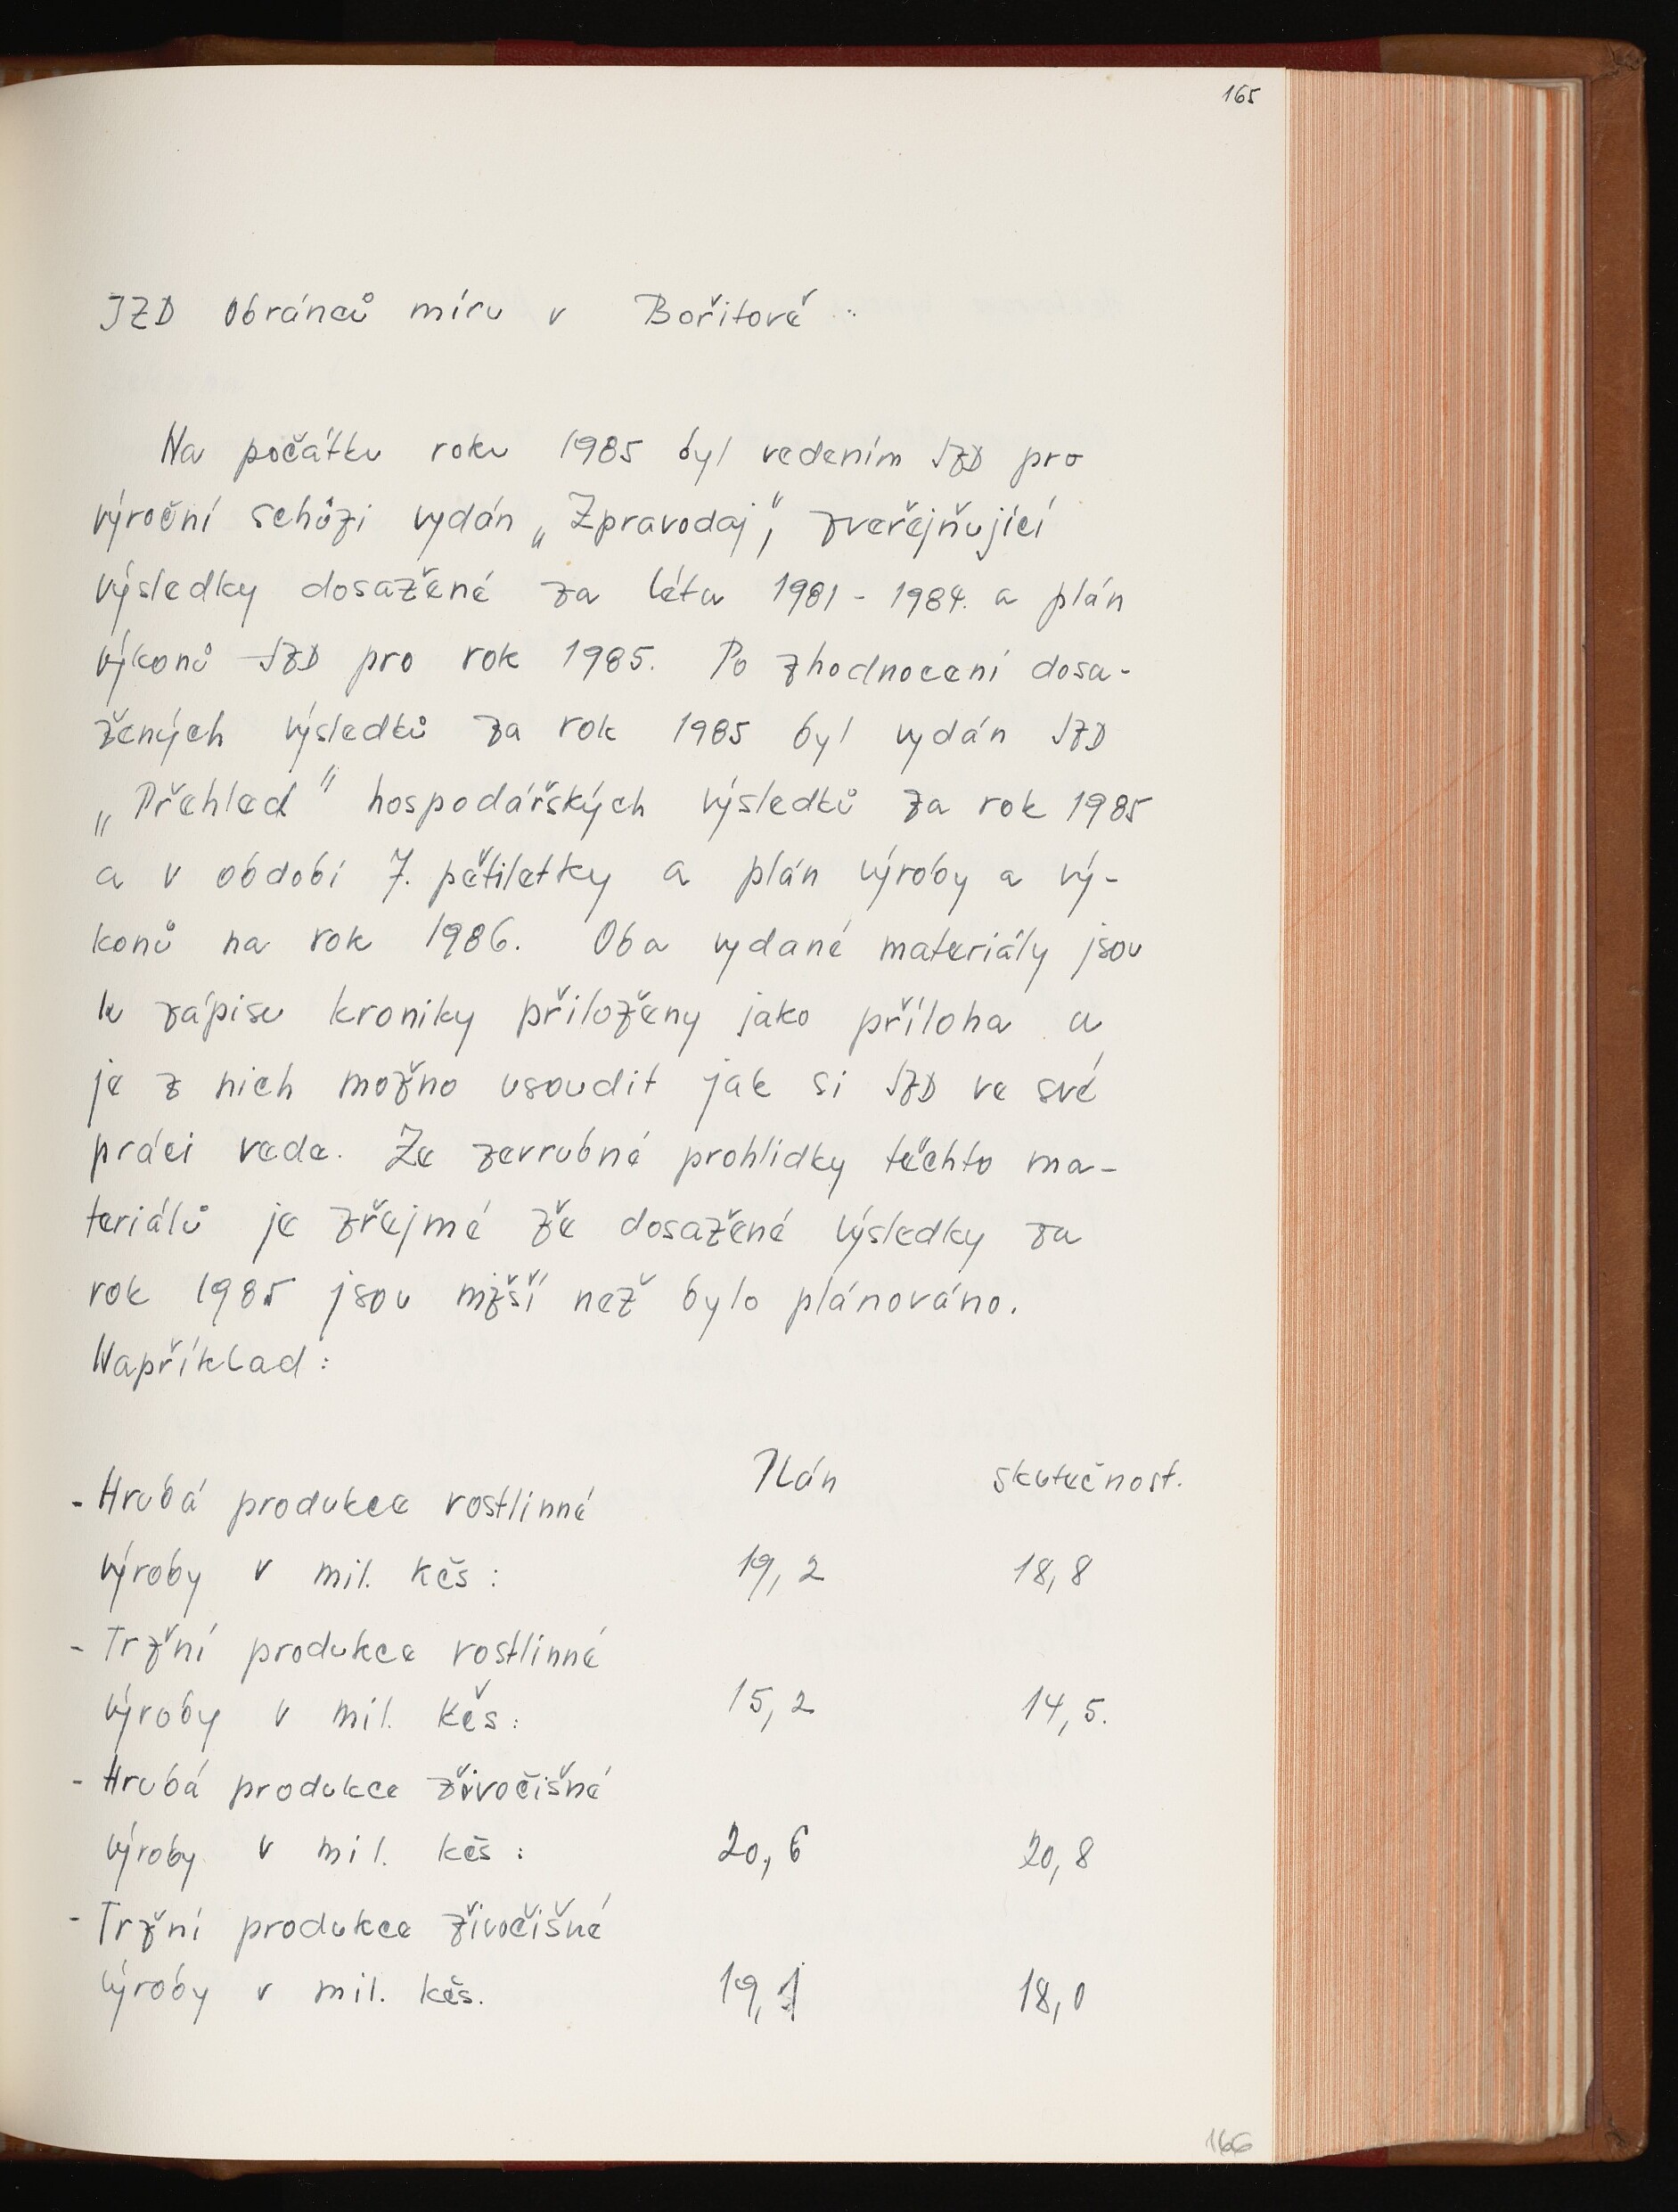 165
JZD Obránců míru v Bořitově :
Na počátku roku 1985 byl vedením JZD pro
výroční schůzi vydán „Zpravodaj", zveřejňující
výsledky dosažené za léta 1981 - 1984. a plán
výkonů JZD pro rok 1985. Po zhodnocení dosa-
žených výsledků za rok 1985 byl vydán JZD
„Přehled" hospodářských výsledků za rok 1985
a v období 7. pětiletky a plán výroby a vý-
konů na rok 1986. Oba vydané materiály jsou
k zápisu kroniky přiloženy jako příloha a
je z nich možno usoudit jak si JZD ve své
práci vede. Ze zevrubné prohlídky těchto ma-
teriálů je zřejmé že dosažené výsledky za
rok 1985 jsou nižší než bylo plánováno.
Například:
Plán skutečnost.
- Hrubá produkce rostlinné
výroby v mil. kčs : 19,2 18,8
- Tržní produkce rostlinné
výroby v mil. kčs : 15,2 14,5.
- Hrubá produkce živočišné
výroby v mil. kčs : 20,6 20,8
- Tržní produkce živočišné
výroby v mil. kčs. 19,1 18,0
166